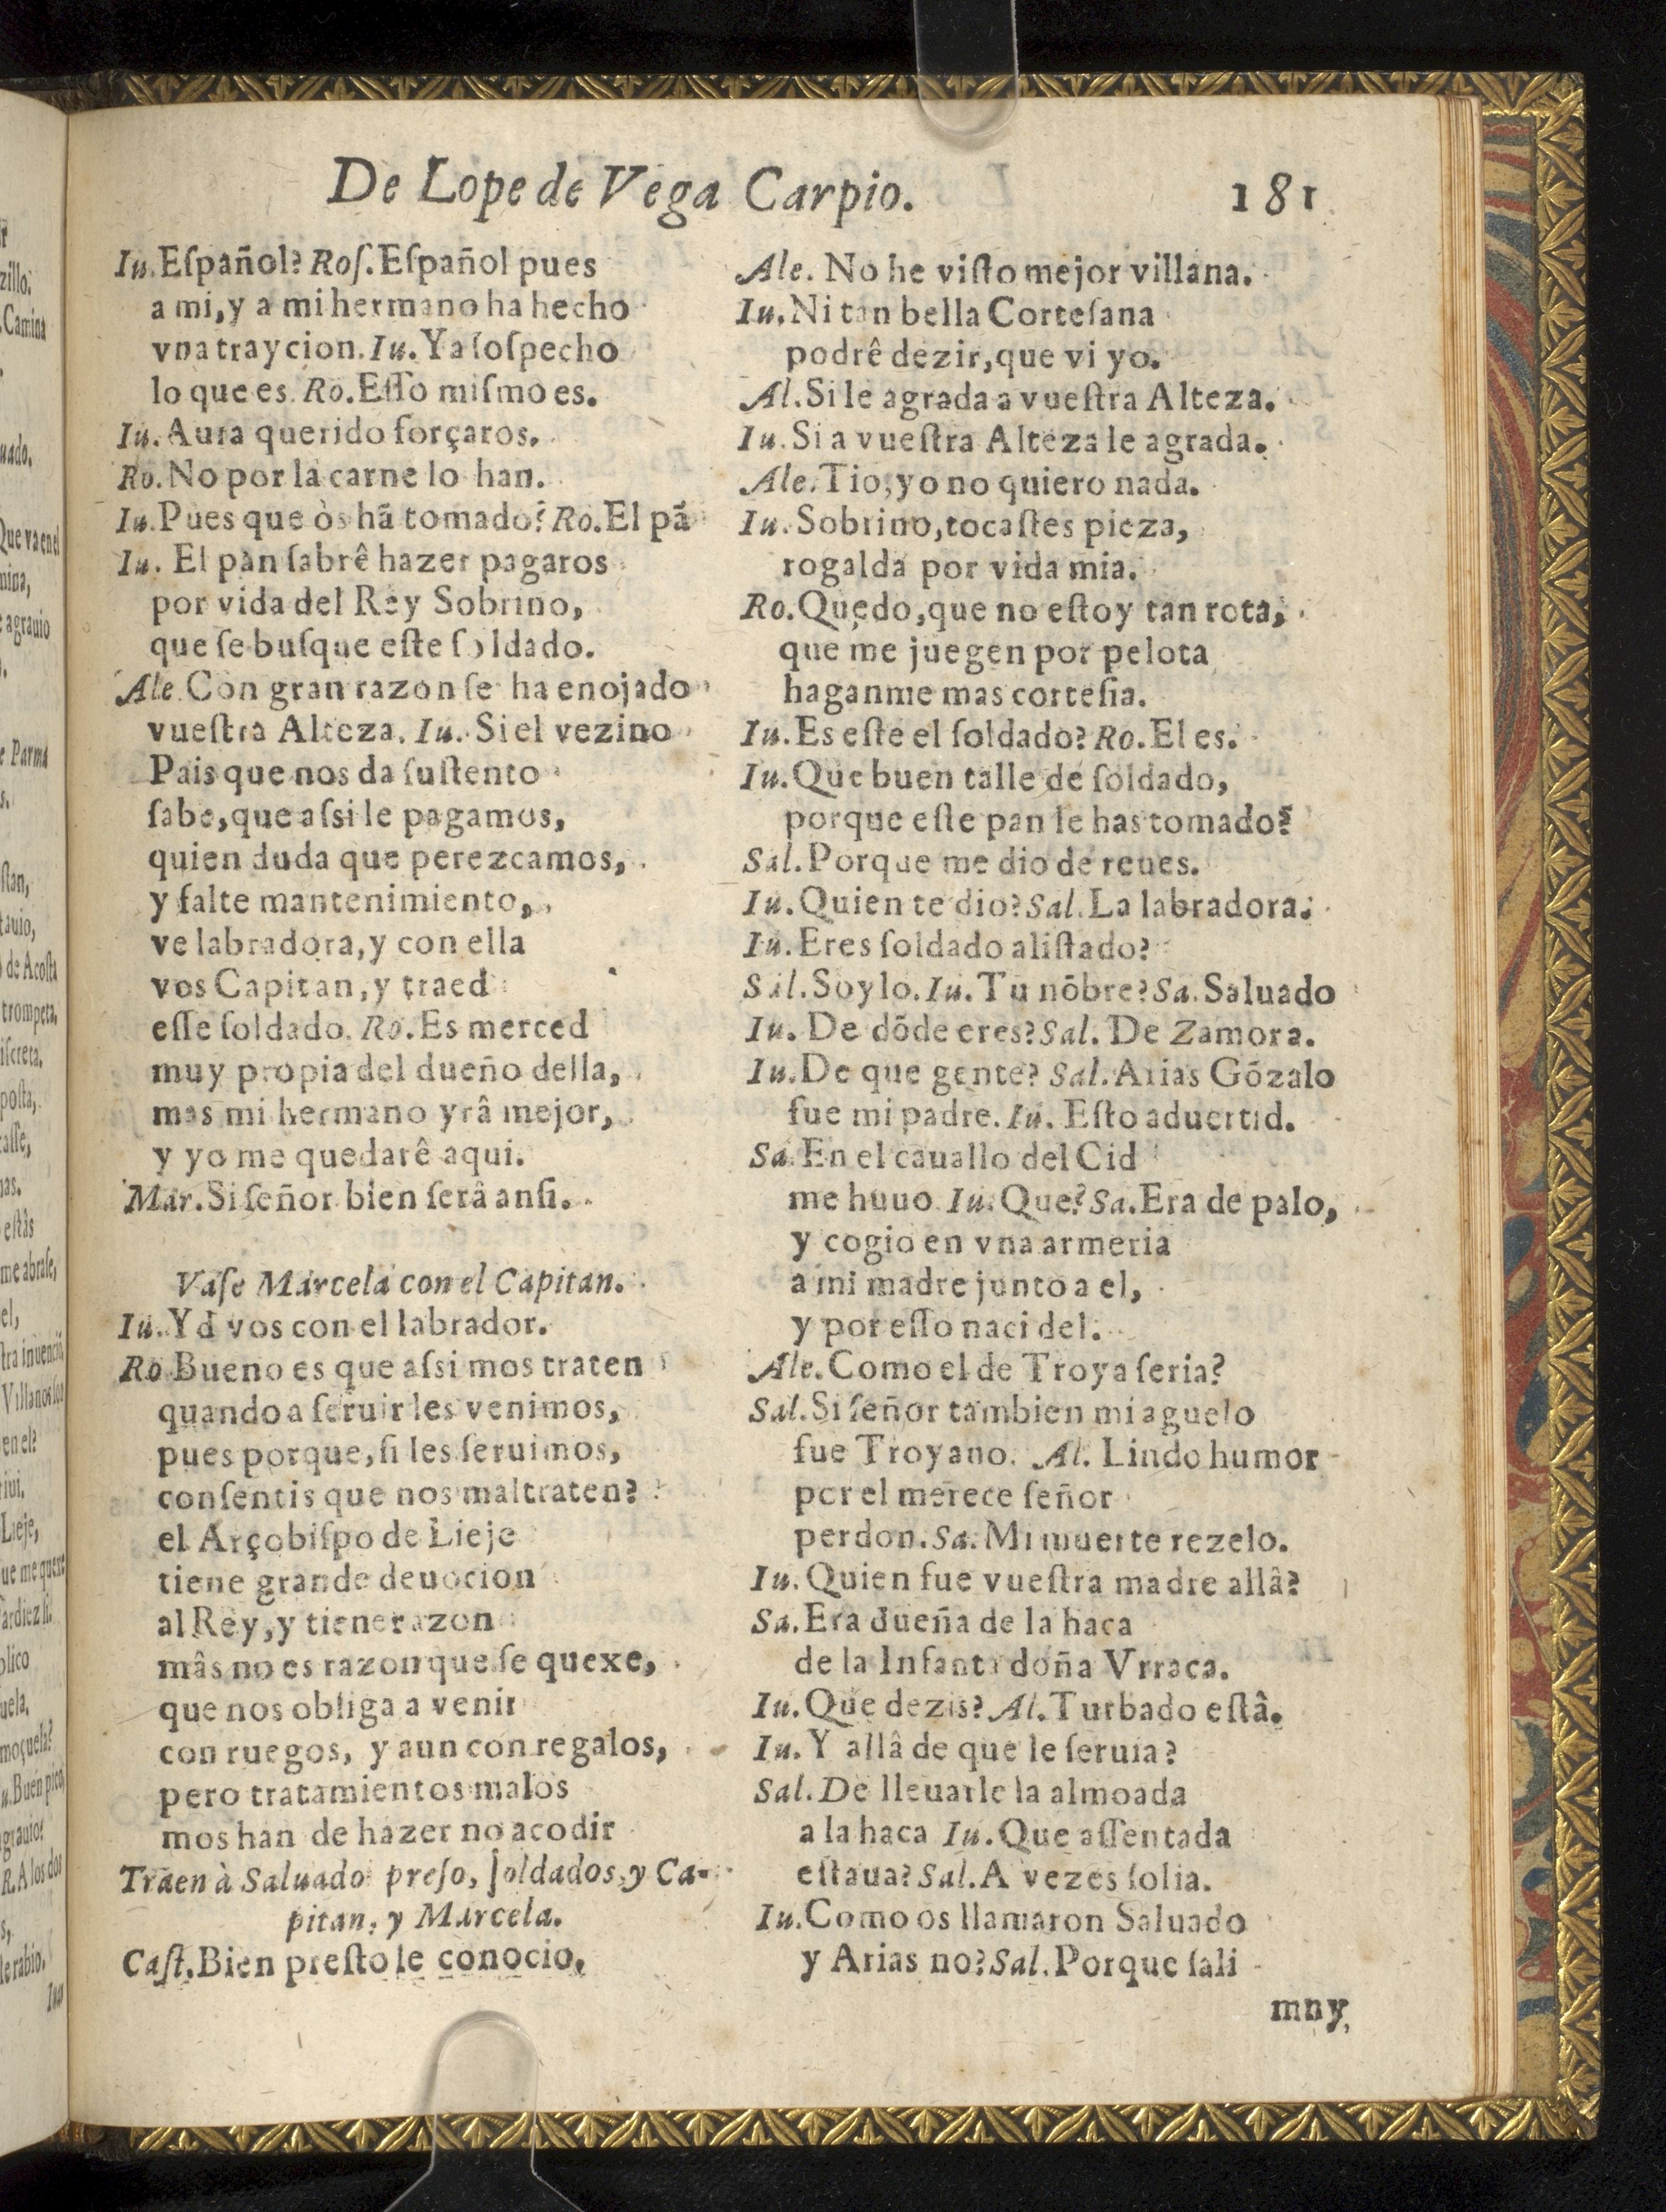 De Lope de Vega Carpio. 181
Iu. Eſpañol? Roſ. Eſpañol pues
a mi, y a mi hermano ha hecho
vna traycion. Iu. Ya ſoſpecho
lo que es. Ro. Eſſo miſmo es.
Iu. Aura querido forçaros.
Ro. No por la carne lo han.
Iu. Pues que òs hã tomado? Ro. El pã
Iu. El pan ſabrê hazer pagaros
por vida del Rey Sobrino,
que ſe buſque eſte ſoldado.
Ale. Con gran razon ſe ha enojado
vueſtra Alteza. Iu. Si el vezino
Pais que nos da ſuſtento
ſabe, que aſsi le pagamos,
quien duda que perezcamos,
y falte mantenimiento,
ve labradora, y con ella
vos Capitan, y traed
eſſe ſoldado. Ro. Es merced
muy propia del dueño della,
mas mi hermano yrâ mejor,
y yo me quedarê aqui.
Mar. Si ſeñor bien ſerâ anſi.
Vaſe Marcela con el Capitan.
Iu. Yd vos con el labrador.
Ro. Bueno es que aſsi mos traten
quando a ſeruirles venimos,
pues porque, ſi les ſeruimos,
conſentis que nos maltraten?
el Arçobiſpo de Lieje
tiene grande deuocion
al Rey, y tiene razon
mâs no es razon que ſe quexe,
que nos obliga a venir
con ruegos, y aun con regalos,
pero tratamientos malos
mos han de hazer no acodir
Traen à Saluado preſo, ſoldados, y Ca-
pitan, y Marcela.
Caſt. Bien preſto le conocio,
Ale. No he viſto mejor villana.
Iu. Ni tan bella Corteſana
podrê dezir, que vi yo.
Al. Si le agrada a vueſtra Alteza.
Iu. Si a vueſtra Alteza le agrada.
Ale. Tio, yo no quiero nada.
Iu. Sobrino, tocaſtes pieza,
rogalda por vida mia.
Ro. Quedo, que no eſtoy tan rota,
que me juegen por pelota
haganme mas corteſia.
Iu. Es eſte el ſoldado? Ro. El es.
Iu. Que buen talle de ſoldado,
porque eſte pan le has tomado?
Sal. Porque me dio de reues.
Iu. Quien te dio? Sal. La labradora.
Iu. Eres ſoldado aliſtado?
Sal. Soylo. Iu. Tu nõbre? Sa. Saluado
Iu. De dõde eres? Sal. De Zamora.
Iu. De que gente? Sal. Arias Gõzalo
fue mi padre. Iu. Eſto aduertid.
Sa. En el cauallo del Cid
me huuo. Iu. Que? Sa. Era de palo,
y cogio en vna armeria
a mi madre junto a el,
y por eſſo naci del.
Ale. Como el de Troya ſeria?
Sal. Si ſeñor tambien mi aguelo
fue Troyano. Al. Lindo humor
por el merece ſeñor
perdon. Sa. Mi muerte rezelo.
Iu. Quien fue vueſtra madre allâ?
Sa. Era dueña de la haca
de la Infanta doña Vrraca.
Iu. Que dezis? Al. Turbado eſtâ.
Iu. Y allâ de que le ſeruia?
Sal. De lleuarle la almoada
a la haca Iu. Que aſſentada
eſtaua? Sal. A vezes ſolia.
Iu. Como os llamaron Saluado
y Arias no? Sal. Porque ſali
mny